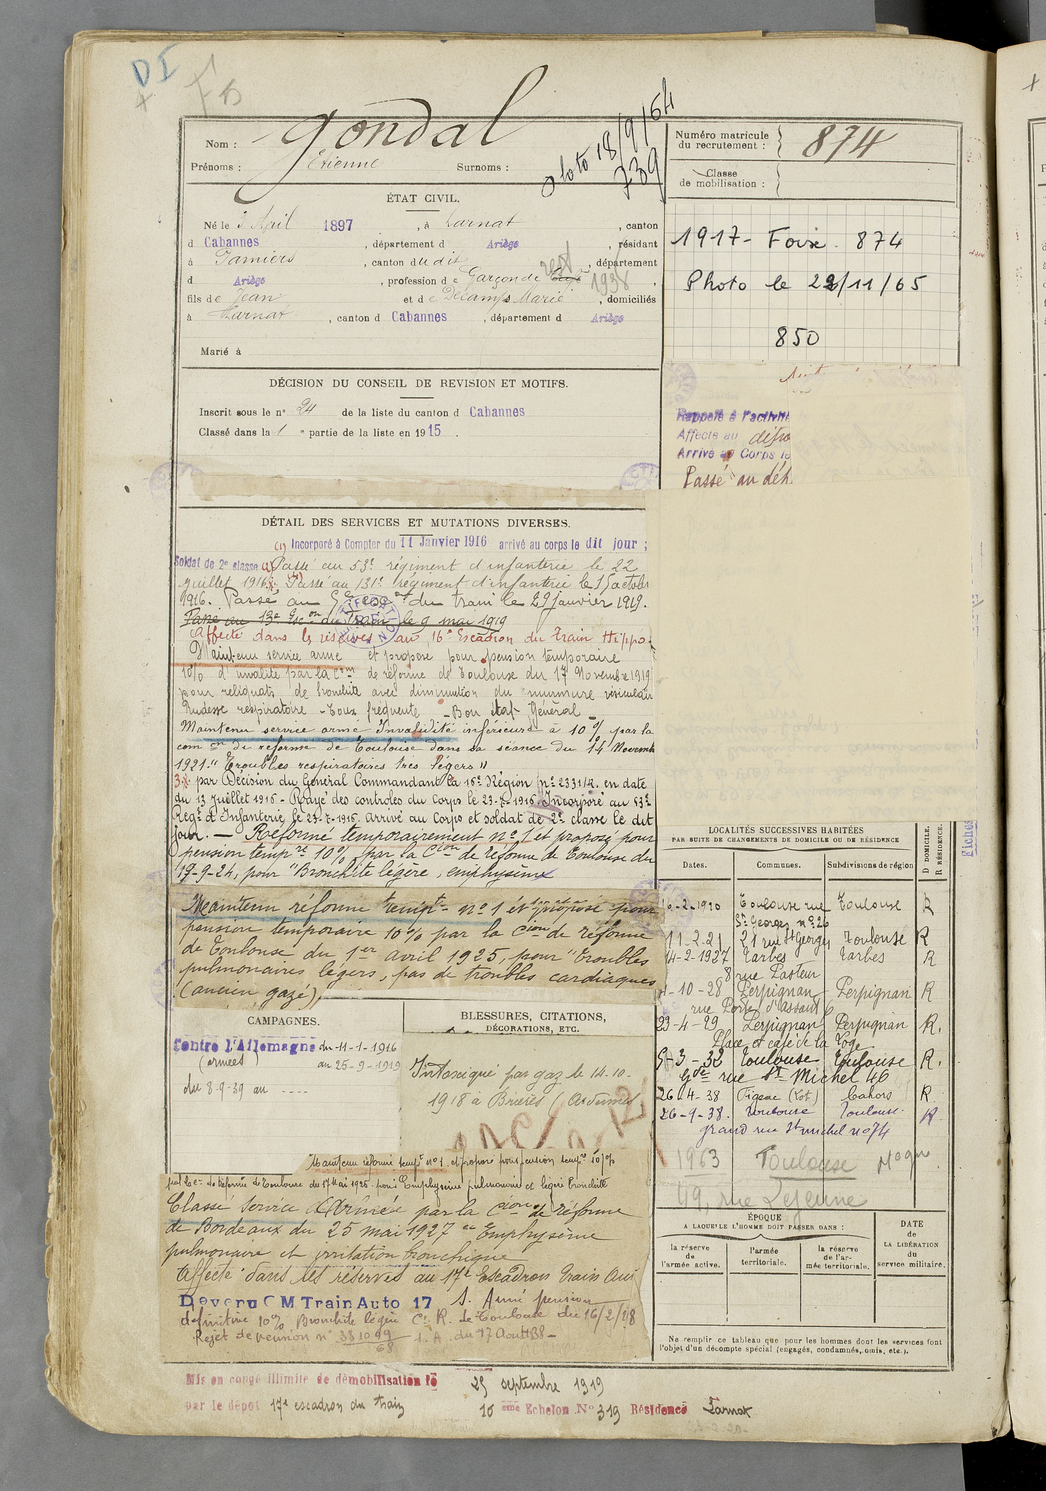 DI
Nom : Gondal
Prénoms : Etienne Surnoms :
Photo 18/9/64
739
Numéro matricule
du recrutement : 874
Classe
de mobilisation :
ÉTAT CIVIL.
Né le 3 Avril 1897, à Larnat, canton
d Cabannes, département d Ariège, résidant
à Pamiers, canton dudit, département
d Ariège, profession de Garçon de Café
rest
1938
fils de Jean et de Décamps Marie, domiciliés
à Larnat, canton d Cabannes, département d Ariège
Marié à
1917 - Foix. 874
Photo le 22/11/65
850
DÉCISION DU CONSEIL DE REVISION ET MOTIFS.
Inscrit sous le n° 24 de la liste du canton d Cabannes
Classé dans la 1e partie de la liste en 1915.
Rappelé à l'activité
Affecté au dépo
Arrivé au Corps le
Passé au dé
DÉTAIL DES SERVICES ET MUTATIONS DIVERSES.
(1) Incorporé à Compter du 11 Janvier 1916 arrivé au corps le dit jour ;
Soldat de 2e classe Passé au 53e régiment d'infanterie le 22
juillet 1916. Passé au 131e Régiment d'infanterie le 15 octobre
1916. Passé au 5e Escon du train le 29 janvier 1919.
Passé au 13e Escon du Train le 9 mai 1919
Affecté dans les réserves au 16e Escadron du Train Hippo.
Maintenu service armé et proposé pour pension temporaire
10% d'invalité par la Con de réforme de Toulouse du 17 Novembre 1919
pour reliquats de bronchite avec diminution du murmure vésiculaire
Rudesse respiratoire - Toux fréquente - Bon état Général -
Maintenu service armé Invalidité inférieure à 10% par la
com on de réforme de Toulouse dans sa séance du 14 Novemb
1921 "Troubles respiratoires très légers"
3 par Décision du Général Commandant la 16e Région n° 2331/R. en date
du 13 Juillet 1916 - Rayé des contrôles du Corps le 23-7-1916. Incorporé au 53e
Regt d'Infanterie le 23-7-1916. Arrivé au Corps et soldat de 2e classe le dit
jour. - Réformé temporairement n° 1 et proposé pour
pension tempre 10% par la Cion de réforme de Toulouse du
19-9-24, pour "Bronchite légère, emphysème
Maintenu réformé tempre n° 1 et proposé pour
pension temporaire 10% par la Cion de réforme
de Toulouse du 1er avril 1925, pour "troubles
pulmonaires légers, pas de troubles cardiaques
(ancien gazé)
CAMPAGNES.
Contre l'Allemagne du 11-1-1916
(armées) au 25-9-1919
du 8-9-39 au ....
BLESSURES, CITATIONS,
DÉCORATIONS, ETC.
Intoxiqué par gaz le 14-10-
1918 à Brières (Ardennes
Maintenu réformé tempre n° 1 et proposé pour pension tempre 10%
Classé Service Armée par la Cion de réforme
de Bordeaux du 25 mai 1927 Emphysème
pulmonaire et irritation bronchique
Affecté dans les réserves au 17e Escadron Train Auto
Devenu C M Train Auto 17 S. Armé pension
définitive 10% Bronchite légère C. R. de Toulouse du 16/2/38
Rejet de pension n°
Mis en congé illimité de démobilisation le 25 septembre 1919
par le dépôt 17e escadron du train 10 ème Echelon N° 319 Résidence Larnat
LOCALITÉS SUCCESSIVES HABITÉES
PAR SUITE DE CHANGEMENTS DE DOMICILE OU DE RÉSIDENCE
Dates. Communes. Subdivisions de région D DOMICILE. R RÉSIDENCE.
Fiches
-2-1920 Toulouse rue Toulouse R
St Georges n° 26
11-2-21 21 rue St Georges Toulouse R
14-2-1927 Tarbes Tarbes R
8 rue Pasteur
-10-28 Perpignan Perpignan R
rue Porte d'Assaut 6
23-4-29 Perpignan Perpignan R.
Place et café de la Loge
5-3-32 Toulouse Toulouse R.
Gde rue St Michel 46
26-4-38 Figeac (Lot) Cahors R
26-9-38. Toulouse Toulouse. R
grand rue St michel n° 74
1963 Toulouse
49, rue Lejeune
ÉPOQUE
A LAQUELLE L'HOMME DOIT PASSER DANS :
la réserve
de
l'armée active.
l'armée
territoriale.
la réserve
de l'ar-
mée territoriale.
DATE
de
LA LIBÉRATION
du
service militaire.
Ne remplir ce tableau que pour les hommes dont les services font
l'objet d'un décompte spécial (engagés, condamnés, omis, etc.).